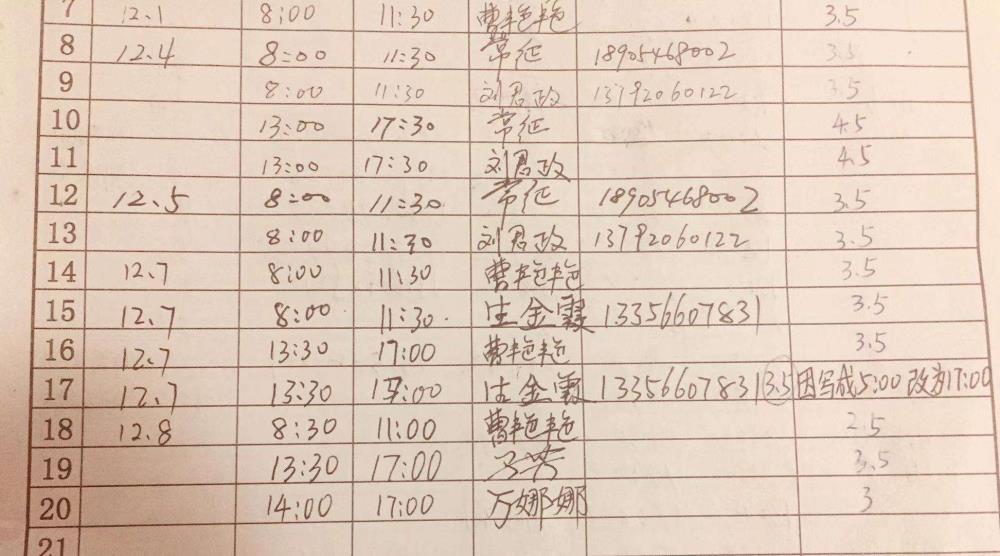 7 12.1 8:00 11:30 曹艳艳 3.5
8 12.4 8:00 11:30 常征 18905468002 3.5
9 8:00 11:30 刘君政 13792060122 3.5
10 13:00 17:30 常征 4.5
11 13:00 17:30 刘君政 4.5
12 12.5 8:00 11:30 常征 18905468002 3.5
13 8:00 11:30 刘君政 13792060122 3.5
14 12.7 8:00 11:30 曹艳艳 3.5
15 12.7 8:00 11:30 生金霞 13356607831 3.5
16 12.7 13:30 17:00 曹艳艳 3.5
17 12.7 13:30 17:00 金霞 13356607831 3.5 因写成5:00 改为17:00
18 12.8 8:30 11:00 曹艳艳 2.5
19 13:30 17:00 3.5
20 14:00 17:00 万娜娜 3
21